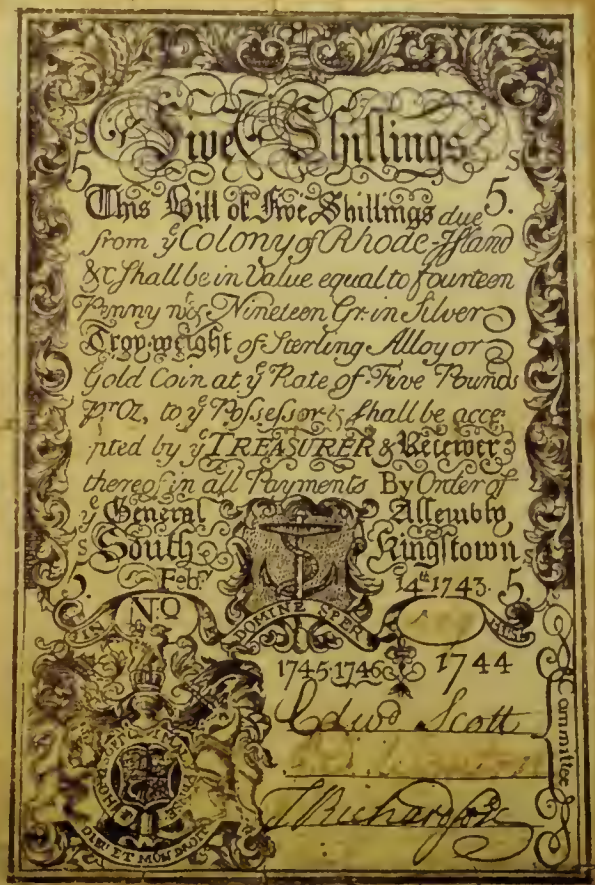 Five Shillings
S S
5 5.
This Bill of Five Shillings due
from yͤ Colony of Rhode-Island
&c Shall be in Value equal to fourteen
Penny wt & Nineteen Gr: in Silver
Troy-weight of Sterling Alloy or
Gold Coin at yͤ Rate of Five Pounds
pr Oz, to yͤ Possessor & shall be acce-
pted by yͤ TREASURER & Receiver
thereof in all Payments By Order of
yͤ General Assembly
S South Kingstown S
5. Feby 14th 1743. 5.
IN No DOMINE SPER
1745 1746 1744
Edwd Scott
T Richardson
Committee
HONI SOIT QUI MAL Y PENSE
DIEU ET MON DROIT